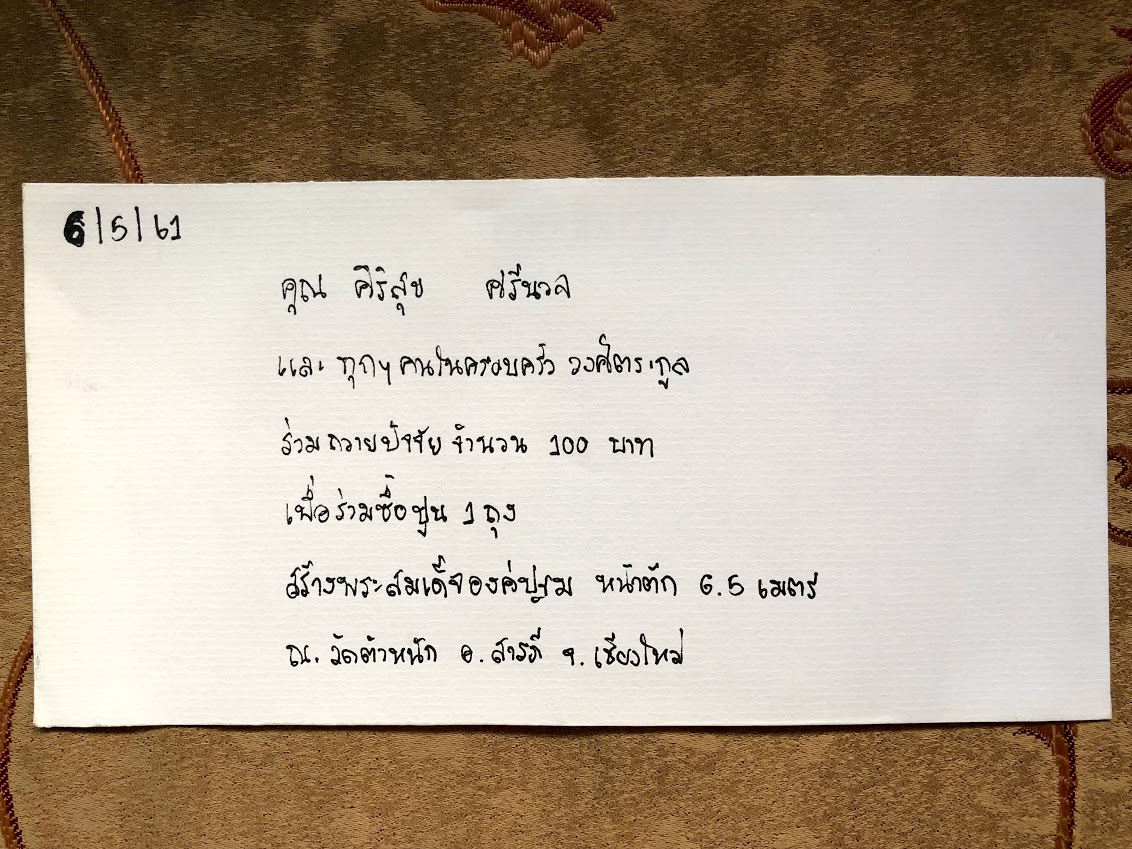 6/5/61
คุณ ศิริสุข ศรีนวล
และ ทุกๆคนในครอบครัว วงศ์ตระกูล
ร่วมถวายปัจจัย จำนวน 100 บาท
เพื่อร่วมซื้อปูน 1 ถุง
สร้างพระสมเด็จองค์ปฐม หน้าตัก 6.5 เมตร
ณ. วัดตำหนัก อ. สารภี จ. เชียงใหม่